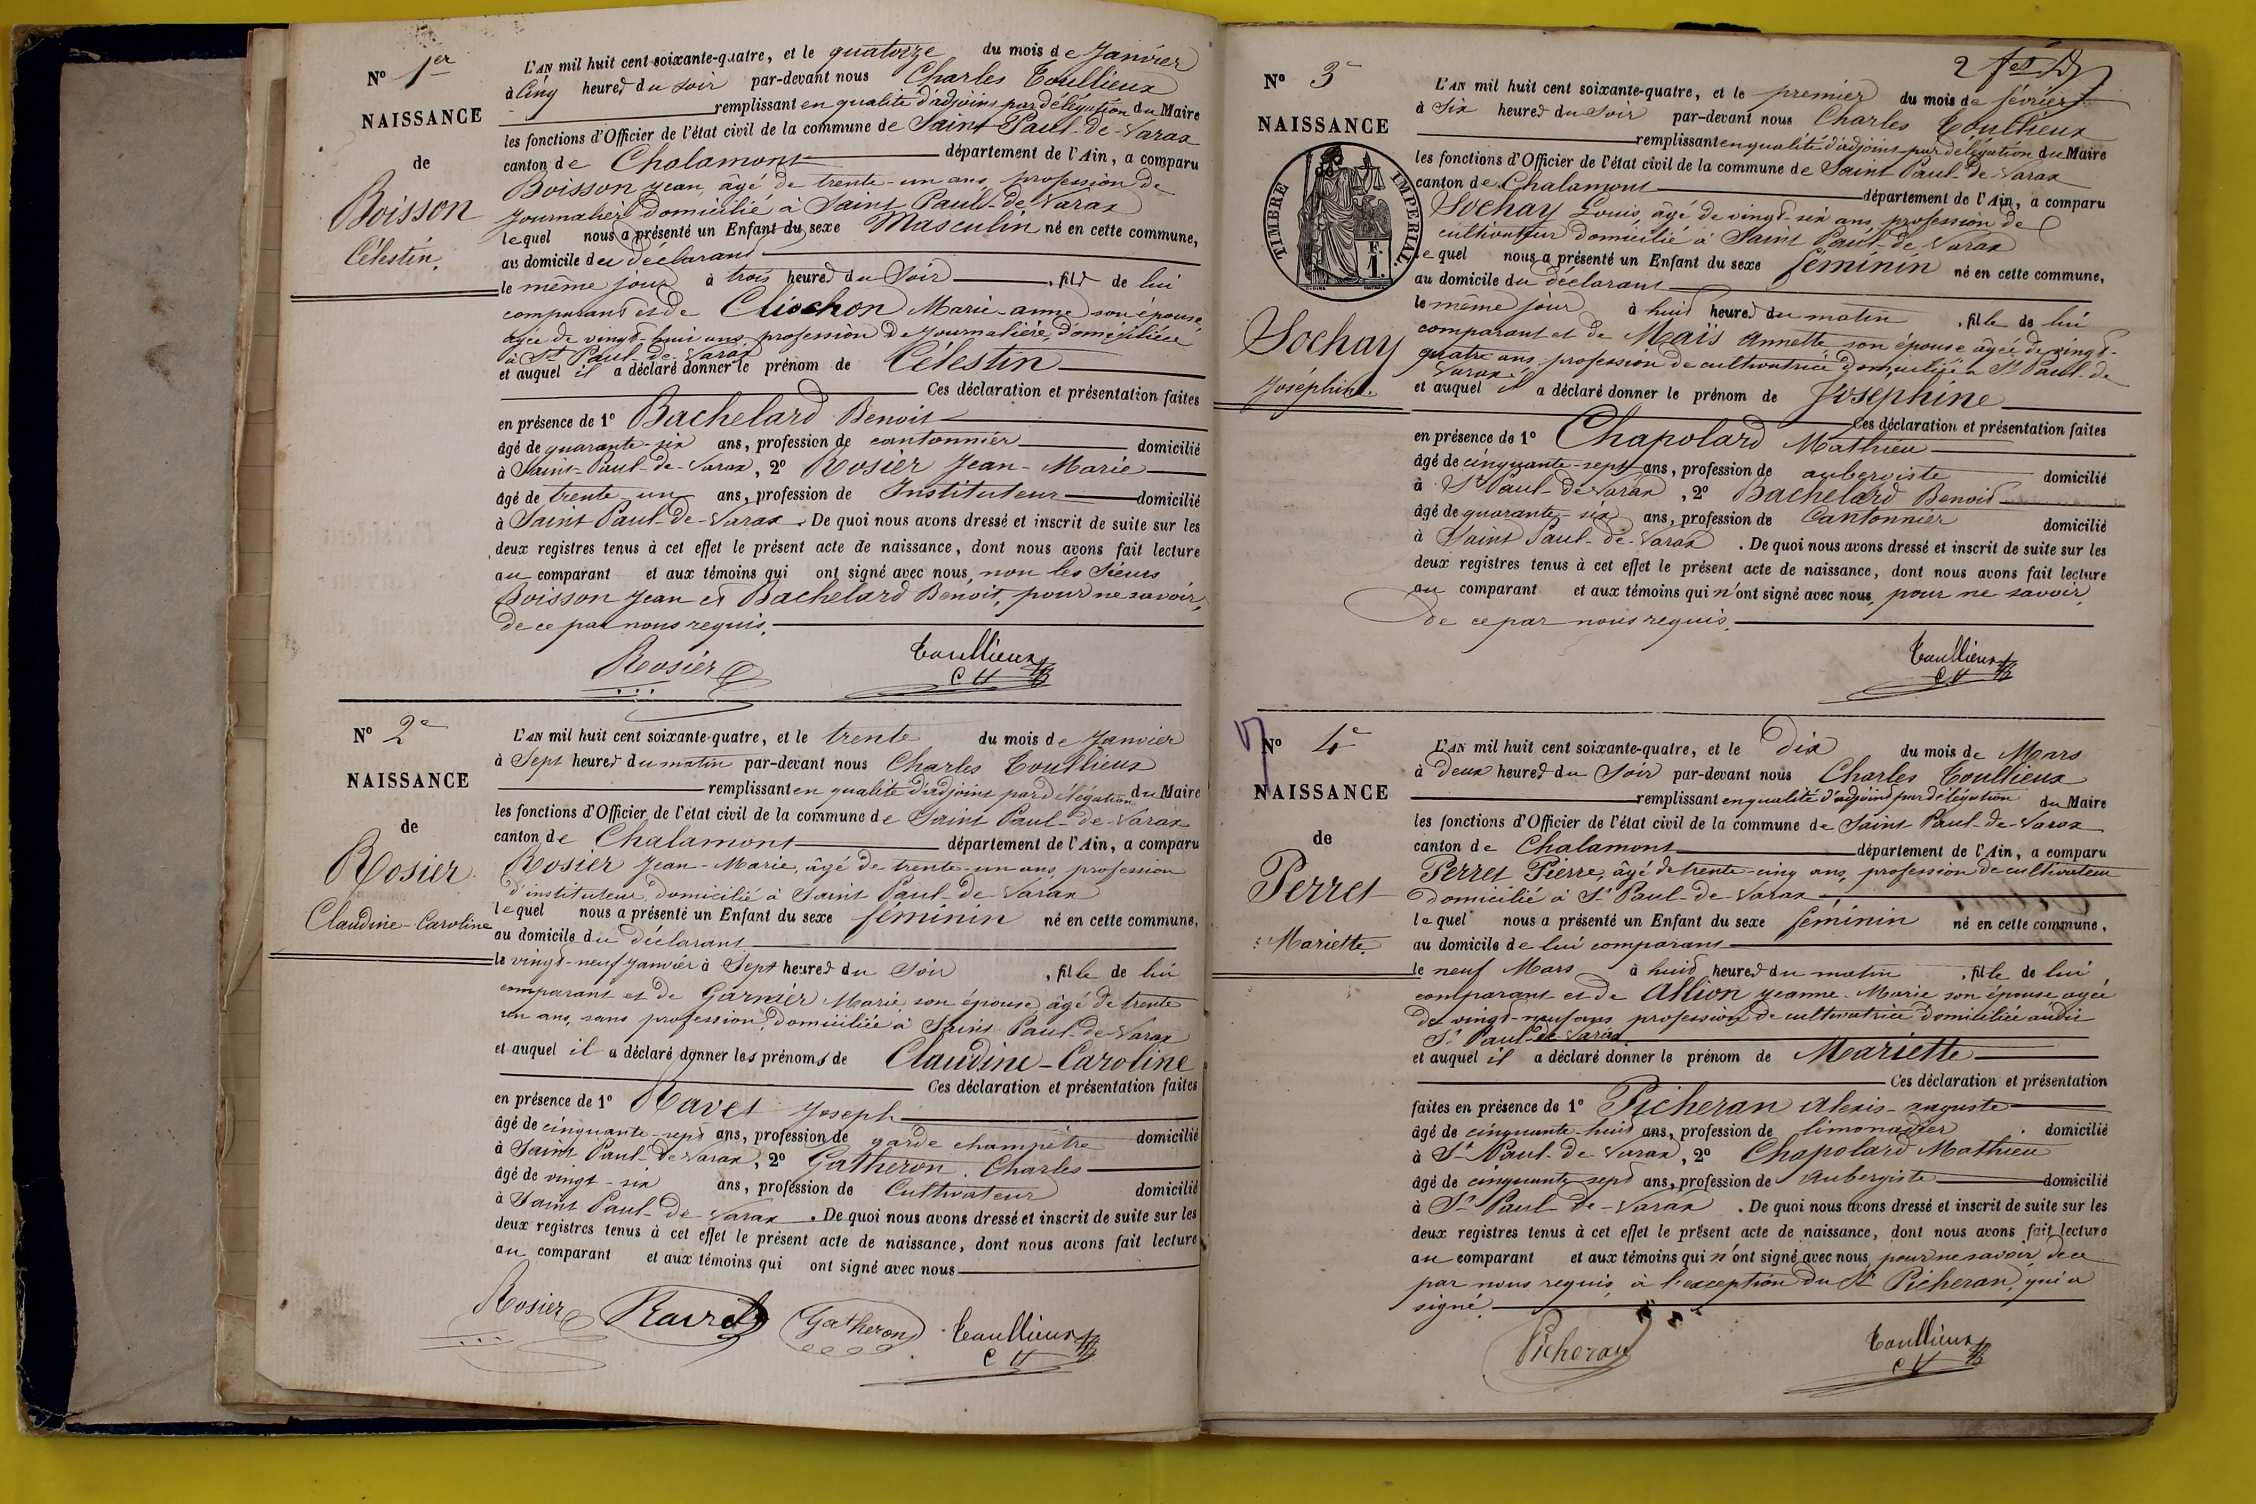 N° 1er
NAISSANCE
de
Boisson
Célestin.
L'AN mil huit cent soixante-quatre, et le quatorze du mois de Janvier
à Cinq heures du soir par-devant nous Charles Toullieux
remplissant en qualité d'adjoint par délégation du Maire
les fonctions d'Officier de l'état civil de la commune de Saint Paul-de-Varax
canton de Chalamont département de l'Ain, a comparu
Boisson Jean, âgé de trente-un ans, profession de
Journalier domicilié à Saint Paul-de-Varax
lequel nous a présenté un Enfant du sexe Masculin né en cette commune,
au domicile du déclarant
le même jour à trois heures du Soir, fils de lui
comparant et de Cliochon Marie-anne son épouse,
âgée de vingt-huit ans profession de Journalière, domiciliée
à St Paul-de-Varax
et auquel il a déclaré donner le prénom de Célestin
Ces déclaration et présentation faites
en présence de 1° Bachelard Benoit
âgé de quarante-six ans, profession de cantonnier domicilié
à Saint-Paul-de-Varax, 2° Rosier Jean-Marie
âgé de trente-un ans, profession de Instituteur domicilié
à Saint Paul-de-Varax. De quoi nous avons dressé et inscrit de suite sur les
deux registres tenus à cet effet le présent acte de naissance, dont nous avons fait lecture
au comparant et aux témoins qui ont signé avec nous, non les Sieurs
Boisson Jean et Bachelard Benoit, pour ne savoir,
de ce par nous requis.
Rosier Toullieux
N° 2e
NAISSANCE
de
Rosier
Claudine-Caroline
L'AN mil huit cent soixante-quatre, et le trente du mois de Janvier
à Sept heures du matin par-devant nous Charles Toullieux
remplissant en qualité d'adjoint par délégation du Maire
les fonctions d'Officier de l'état civil de la commune de Saint Paul-de-Varax
canton de Chalamont département de l'Ain, a comparu
Rosier Jean-Marie, âgé de trente-un ans, profession
d'instituteur, domicilié à Saint Paul-de-Varax
lequel nous a présenté un Enfant du sexe féminin né en cette commune,
au domicile du déclarant
le vingt-neuf Janvier à Sept heures du Soir, fille de lui
comparant et de Garnier Marie son épouse, âgé de trente
un ans, sans profession, domiciliée à Saint Paul-de-Varax
et auquel il a déclaré donner les prénoms de Claudine-Caroline
Ces déclaration et présentation faites
en présence de 1° Ravet Joseph
âgé de cinquante-sept ans, profession de garde champêtre domicilié
à Saint Paul-de-Varax, 2° Gatheron Charles
âgé de vingt-six ans, profession de Cultivateur domicilié
à Saint Paul-de-Varax. De quoi nous avons dressé et inscrit de suite sur les
deux registres tenus à cet effet le présent acte de naissance, dont nous avons fait lecture
au comparant et aux témoins qui ont signé avec nous
Rosier Ravet Gatheron Toullieux
N° 3e
NAISSANCE
TIMBRE IMPERIAL
F.
1.
Sochay
Joséphine.
L'AN mil huit cent soixante-quatre, et le premier du mois de février
à Six heures du Soir par-devant nous Charles Toullieux
remplissant en qualité d'adjoint par délégation du Maire
les fonctions d'Officier de l'état civil de la commune de Saint Paul-de-Varax
canton de Chalamont département de l'Ain, a comparu
Sochay Louis, âgé de vingt-six ans, profession de
cultivateur domicilié à Saint Paul-de-Varax
lequel nous a présenté un Enfant du sexe féminin né en cette commune,
au domicile du déclarant
le même jour à huit heures du matin, fille de lui
comparant et de Maïs Annette son épouse âgée de vingt-
quatre ans, profession de cultivatrice domiciliée à St Paul-de
Varax
et auquel il a déclaré donner le prénom de Joséphine
Ces déclaration et présentation faites
en présence de 1° Chapolard Mathieu
âgé de cinquante-sept ans, profession de aubergiste domicilié
à St Paul-de-Varax, 2° Bachelard Benoit
âgé de quarante-six ans, profession de Cantonnier domicilié
à Saint Paul-de-Varax. De quoi nous avons dressé et inscrit de suite sur les
deux registres tenus à cet effet le présent acte de naissance, dont nous avons fait lecture
au comparant et aux témoins qui n'ont signé avec nous, pour ne savoir,
de ce par nous requis.
Toullieux
N° 4e
NAISSANCE
de
Perret
Mariette.
L'AN mil huit cent soixante-quatre, et le Dix du mois de Mars
à deux heures du Soir par-devant nous Charles Toullieux
remplissant en qualité d'adjoint par délégation du Maire
les fonctions d'Officier de l'état civil de la commune de Saint Paul-de-Varax
canton de Chalamont département de l'Ain, a comparu
Perret Pierre, âgé de trente-cinq ans, profession de cultivateur
domicilié à St Paul-de-Varax
lequel nous a présenté un Enfant du sexe féminin né en cette commune,
au domicile de lui comparant
le neuf Mars à huit heures du matin, fille de lui
comparant et de Allion Jeanne-Marie son épouse agée
de vingt-neuf ans profession de cultivatrice domiciliée audit
St Paul-de-Varax
et auquel il a déclaré donner le prénom de Mariette
Ces déclaration et présentation
faites en présence de 1° Picheran Alexis-auguste
âgé de cinquante-huit ans, profession de limonadier. domicilié
à St Paul-de-Varax, 2° Chapolard Mathieu
âgé de cinquante-sept ans, profession de Aubergiste domicilié
à St Paul-de-Varax. De quoi nous avons dressé et inscrit de suite sur les
deux registres tenus à cet effet le présent acte de naissance, dont nous avons fait lecture
au comparant et aux témoins qui n'ont signé avec nous, pour ne savoir, de ce
par nous requis, à l'exception du Sr Picheran, qui a
signé.
Picheran Toullieux